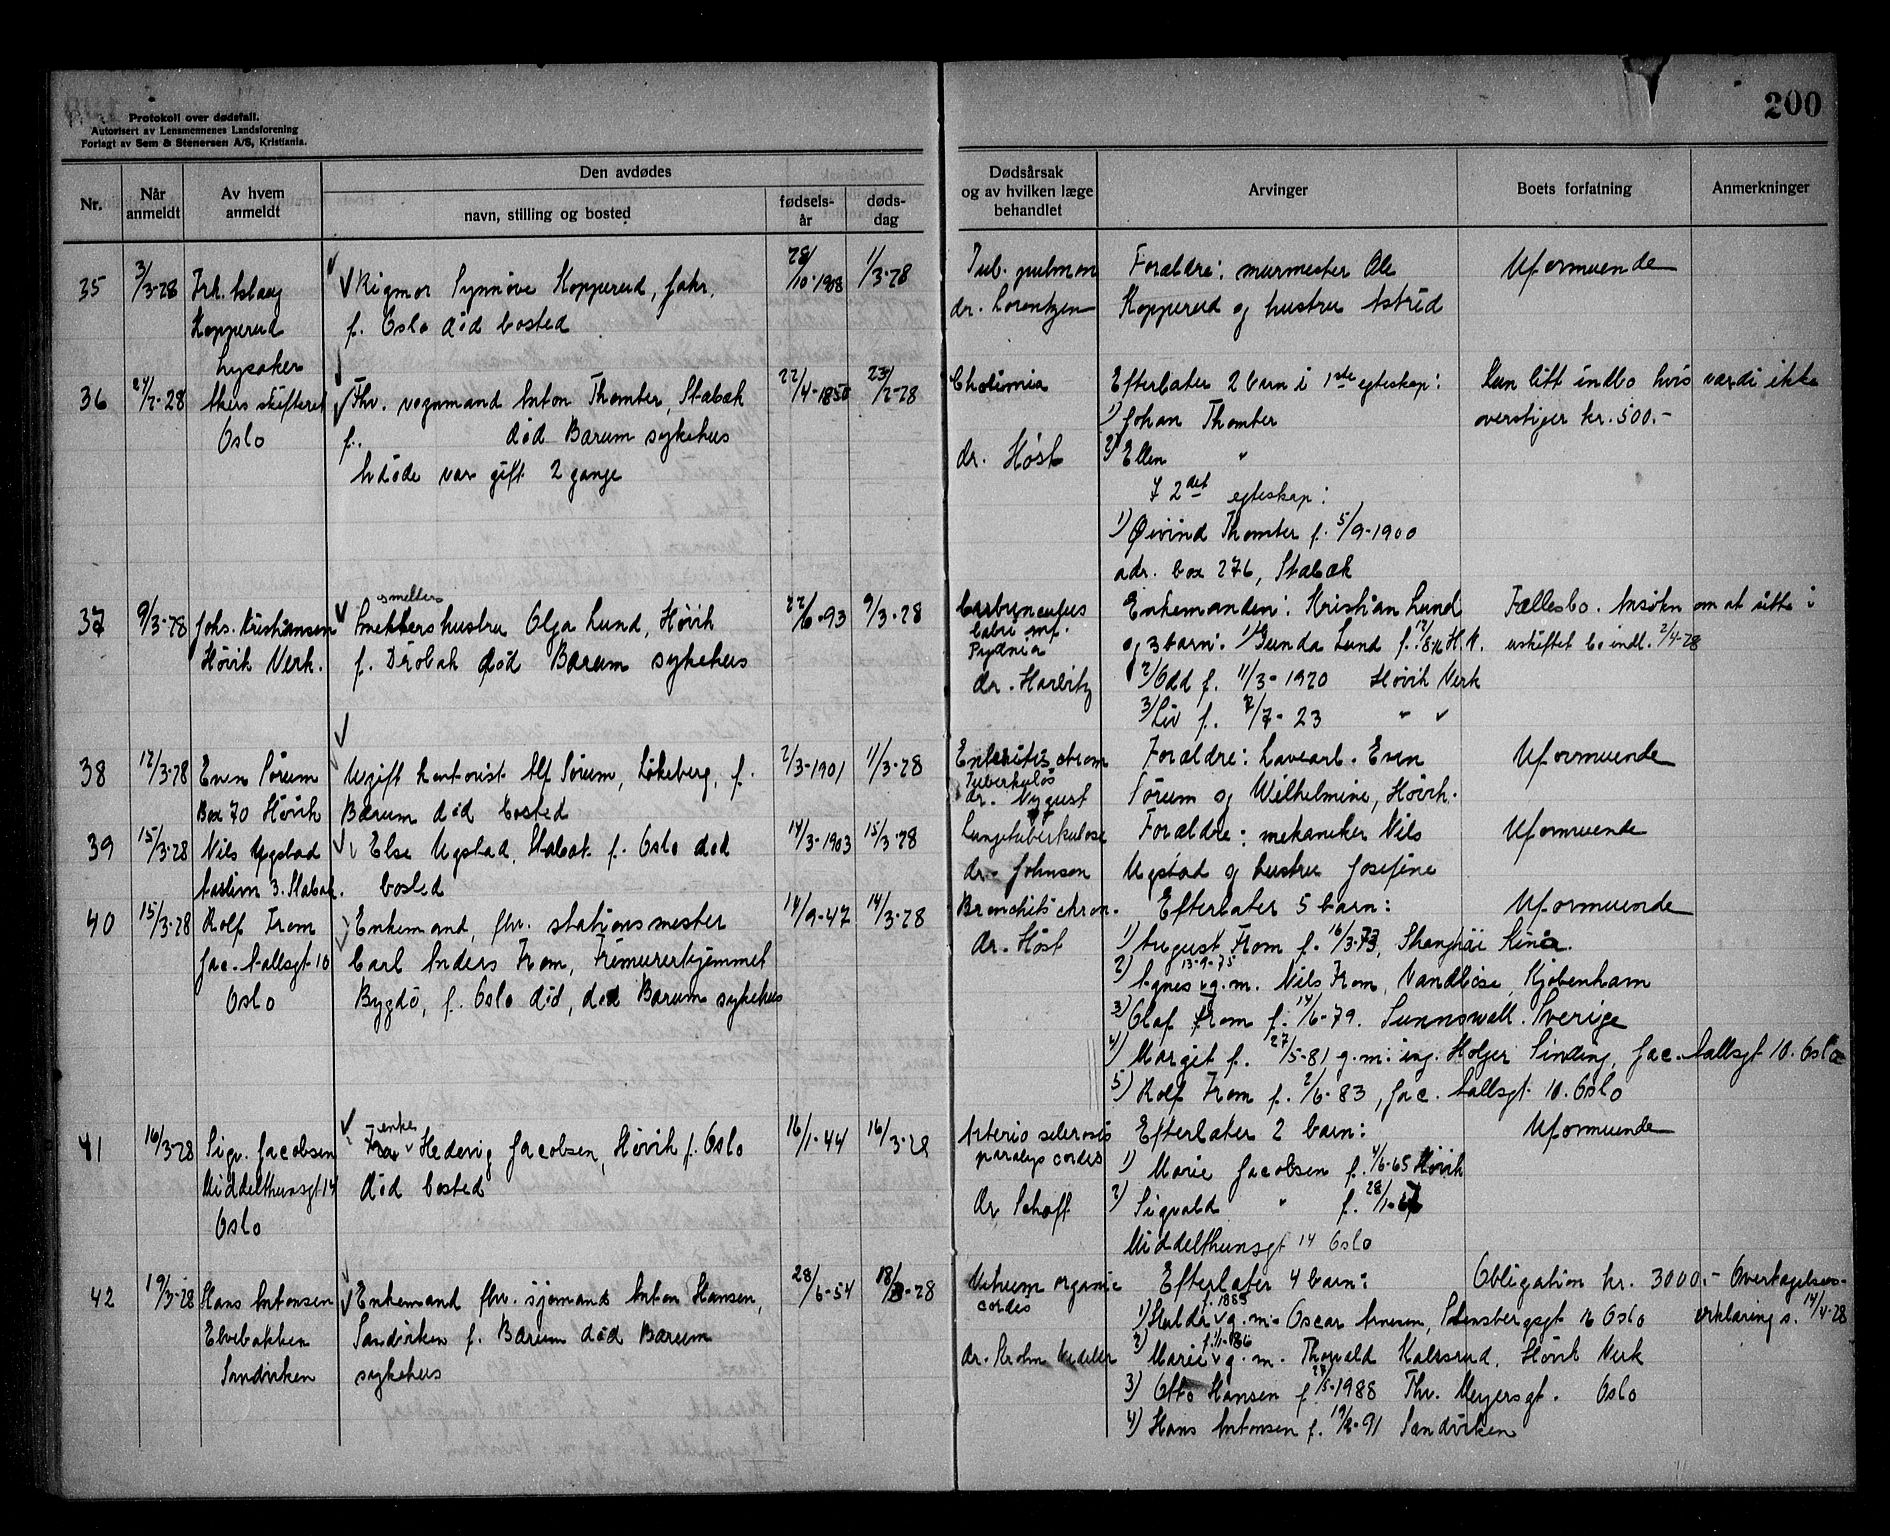 200
Protokoll over dødsfall.
Autorisert av Lensmennenes Landsforening
Forlagt av Sem & Stenersen A/S, Kristiania.
Nr.
Når anmeldt
Av hvem anmeldt
Den avdødes
navn, stilling og bosted
fødsels-år
døds-dag
Dødsårsak og av hvilken læge behandlet
Arvinger
Boets forfatning
Anmerkninger
35 3/3-28 Frk. Aslaug Kopperud Lysaker
Rigmor Synnøve Kopperud,
f. Oslo død bosted
28/10-1908 1/3-28
Tub. pulmon
dr. Lorentzen
Foreldre: murmester Ole
Kopperud og hustru Astrid
Uformuende
36 24/2-28 Akers skifteret Oslo
Fhv. vognmand Anton Thomter, Stabæk
f. død Bærum sykehus
Avdøde var gift 2 gange
22/4-1850 23/2-28
dr. Høst
Efterlater 2 barn i 1ste egteskap:
1) Johan Thomter
2) Ellen "
I 2det egteskap:
1) Øivind Thomter f. 5/9-1900
adr. box 276, Stabæk
Kun litt indbo hvis værdi ikke
overstiger kr. 500.-
37 9/3-28 Johs. Kristiansen Høvik Verk.
smelters
hustru Olga Lund, Høvik
f. Drøbak død Bærum sykehus
22/6-93 9/3-28
Carbunculus
labii inf.
Pyæmia
dr. Harbitz
Enkemanden: Kristian Lund
og 3 barn: 1) Gunda Lund f. H.V.
2) Odd f. 11/3-1920 Høvik Verk
3) Liv f. 7/7-23 " "
Fællesbo. Ansøkn om at sitte i
uskiftet bo indl. 2/4-28
38 12/3-28 Even Sørum Box 70 Høvik
Ugift kontorist Alf Sørum, Løkeberg, f.
Bærum død bosted
2/3-1901 11/3-28
Enteritis chron
Tuberkuløs
dr. Nygust
Foreldre: Even
Sørum og Wilhelmine, Høvik.
Uformuende
39 15/3-28 Nils Ugstad Stabæk.
Else Ugstad, Stabæk f. Oslo død
bosted
14/3-1903 15/3-28
Lungetuberkulose
dr. Johnson
Foreldre: mekaniker Nils
Ugstad og hustru Josefine
Uformuende
40 15/3-28 Rolf From Jac. Aallsgt 10 Oslo
Enkemand, fhv. stationsmester
Carl Anders From, Frimurerhjemmet
Bygdø, f. Oslo død, død Bærum sykehus
14/9-47 14/3-28
Bronchitis chron.
dr. Høst
Efterlater 5 barn:
1) August From f. 16/3-73, Shanghai Kina.
13-9-75
2) Agnes g.m. Nils From, Vandløse, Kjøbenham
3) Olaf From f. 14/6-79. Sunnswall. Sverige
4) Margit f. 27/5-81 g.m. ing. Holger Sinding, Jac. Aallsgt 10. Oslo
5) Rolf From f. 2/6-83, Jac. Aallsgt 10. Oslo
Uformuende
41 16/3-28 Sigv. Jacobsen Middelthunsgt 14 Oslo
enke
Fru Hedevig Jacobsen, Høvik f. Oslo
død bosted
16/1-44 16/3-28
Arterio sclerosis
paralys cordis
dr Schoff
Efterlater 2 barn:
1) Marie Jacobsen f. 4/6-65 Høvik
2) Sigvald " f. 28/1-67
Middelthunsgt 14 Oslo
Uformuende
42 19/3-28 Hans Antonsen Elvebakken Sandviken
Enkemand fhv. sjømand Anton Hansen,
Sandviken f. Bærum død Bærum
sykehus
28/6-54 18/3-28
organic
cordis
dr. Krohn
Efterlater 4 barn:
f. 1885
1) Hulda g.m. Oscar Arnesen, Oslo
2) Marie g.m. Thorvald Kalsrud, Høvik Verk
3) Otto Hansen f. Thv. Meyersgt. Oslo
4) Hans Antonsen f. Sandviken
Obligation kr. 3000.- Overtagelses-
erklæring s. 14/4-28